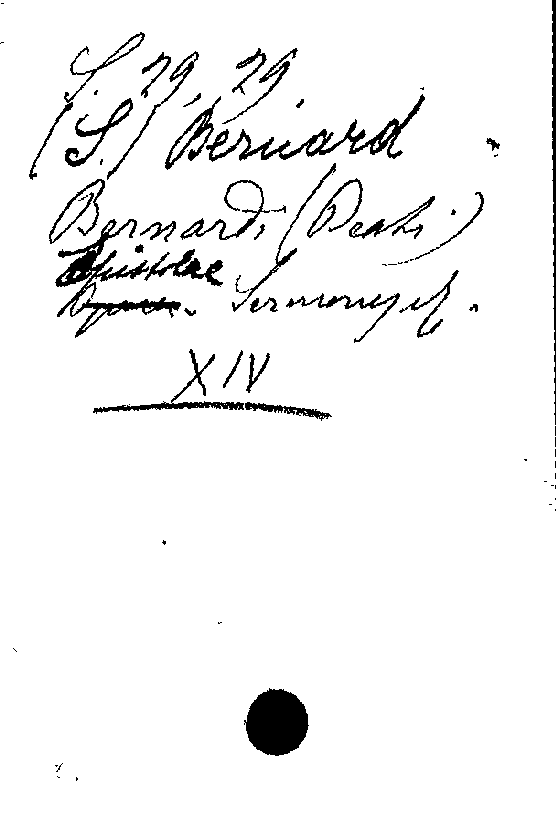 S. 29, 29
(S.) Bernard
Bernardi (Beati)
Epistolae
Opera. Sermonesq.
XIV